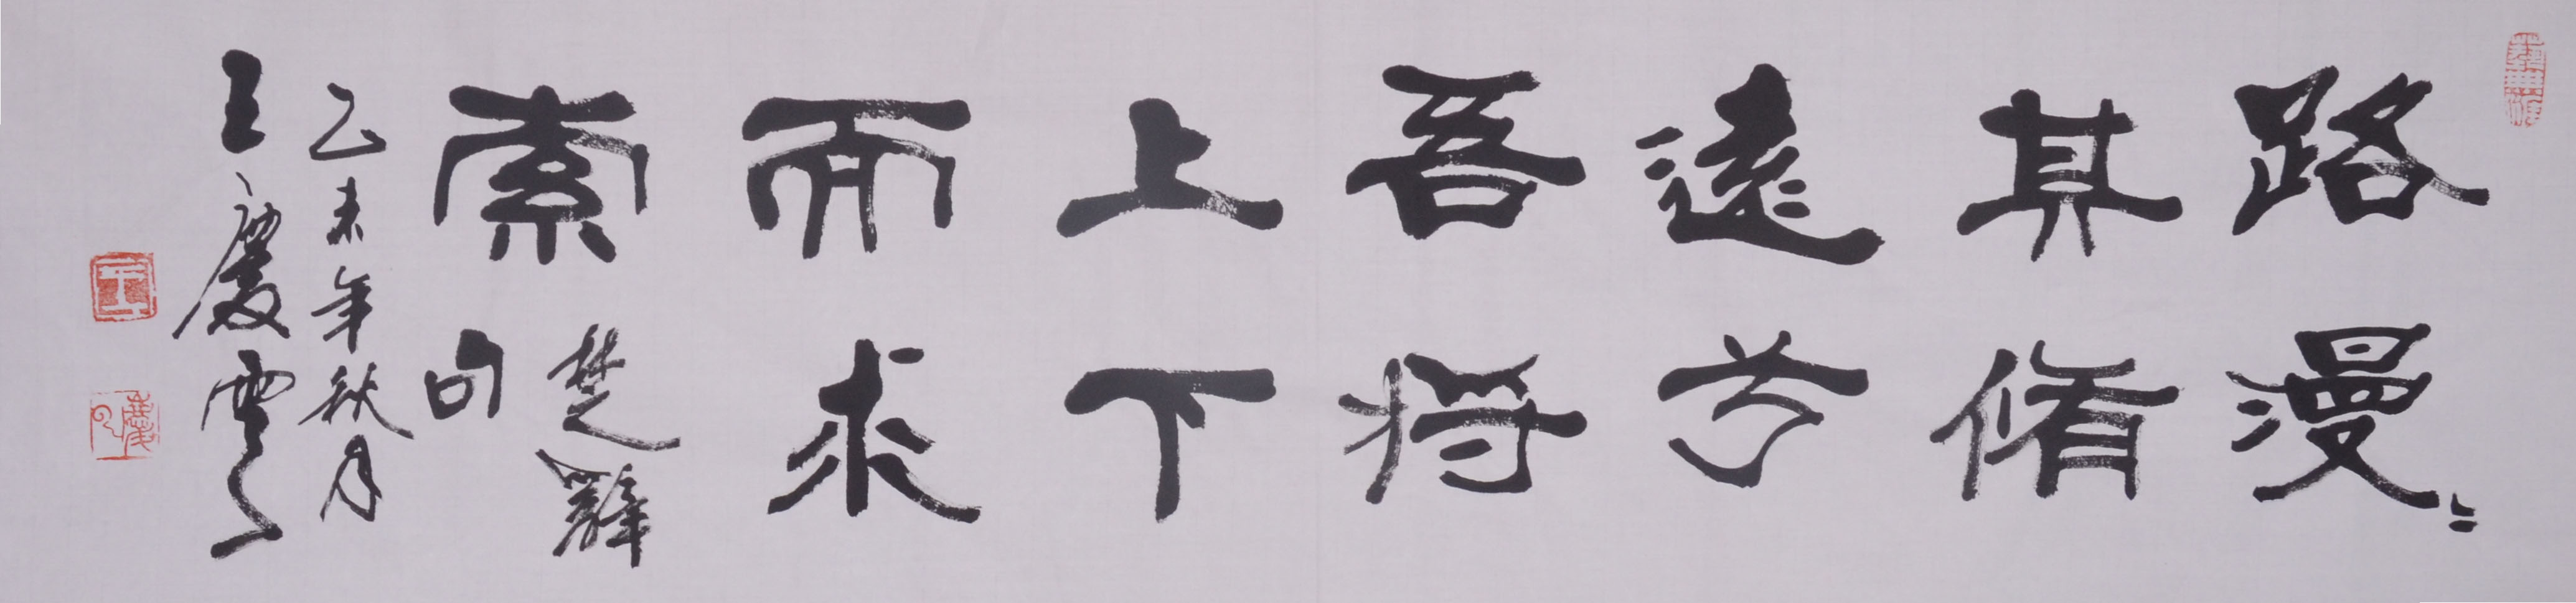 路漫〻
其脩
遠兮
吾將
上下
而求
索
楚辭
句
乙未年秋月
王慶雲